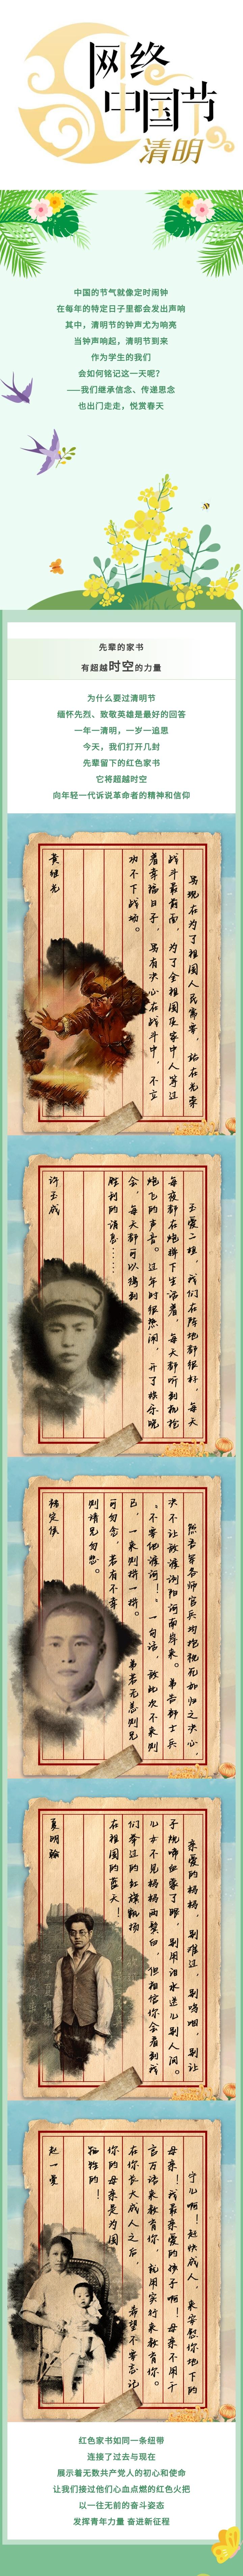 网络
中国节
清明
中国的节气就像定时闹钟
在每年的特定日子里都会发出声响
其中，清明节的钟声尤为响亮
当钟声响起，清明节到来
作为学生的我们
会如何铭记这一天呢？
——我们继承信念、传递思念
也出门走走，悦赏春天
先辈的家书
有超越时空的力量
为什么要过清明节
缅怀先烈、致敬英雄是最好的回答
一年一清明，一岁一追思
今天，我们打开几封
先辈留下的红色家书
它将超越时空
向年轻一代诉说革命者的精神和信仰
男现在为了祖国人民需要，站在光荣
战斗最前面，为了全祖国及家中人等过
着幸福日子，男有决心在战斗中，不立
功不下战场。
黄继光
玉爱二姐，我们在阵地都很好，每天
每夜都在炮弹下生活着，每天都听到机枪
炮飞的声音。过年时很热闹，开了娱乐晚
会，每天都可以得到
胜利的消息……
许玉成
然吾军各师官兵均抱视死如归之决心，
决不让敌渡浏阳河南岸来。弟告部士兵
“不要他渡河！”一句话，敌此次不来则
已，一来则拼一拼。弟若无恙则兄
可勿念，若有不幸
则请兄勿悲。
褚定侯
亲爱的妈妈，别难过，别呜咽，别让
子规啼血蒙了眼，别用泪水送儿别人间。
儿女不见妈妈两鬓白，但相信你会看到我
们举过的红旗飘扬
在祖国的蓝天！
夏明翰
宁儿啊！赶快成人，来安慰你地下的
母亲！我最亲爱的孩子啊！母亲不用千
言万语来教育你，就用实行来教育你。
在你长大成人之后，希望不要忘记
你的母亲是为国
牺牲的！
赵一曼
红色家书如同一条纽带
连接了过去与现在
展示着无数共产党人的初心和使命
让我们接过他们心血点燃的红色火把
以一往无前的奋斗姿态
发挥青年力量 奋进新征程